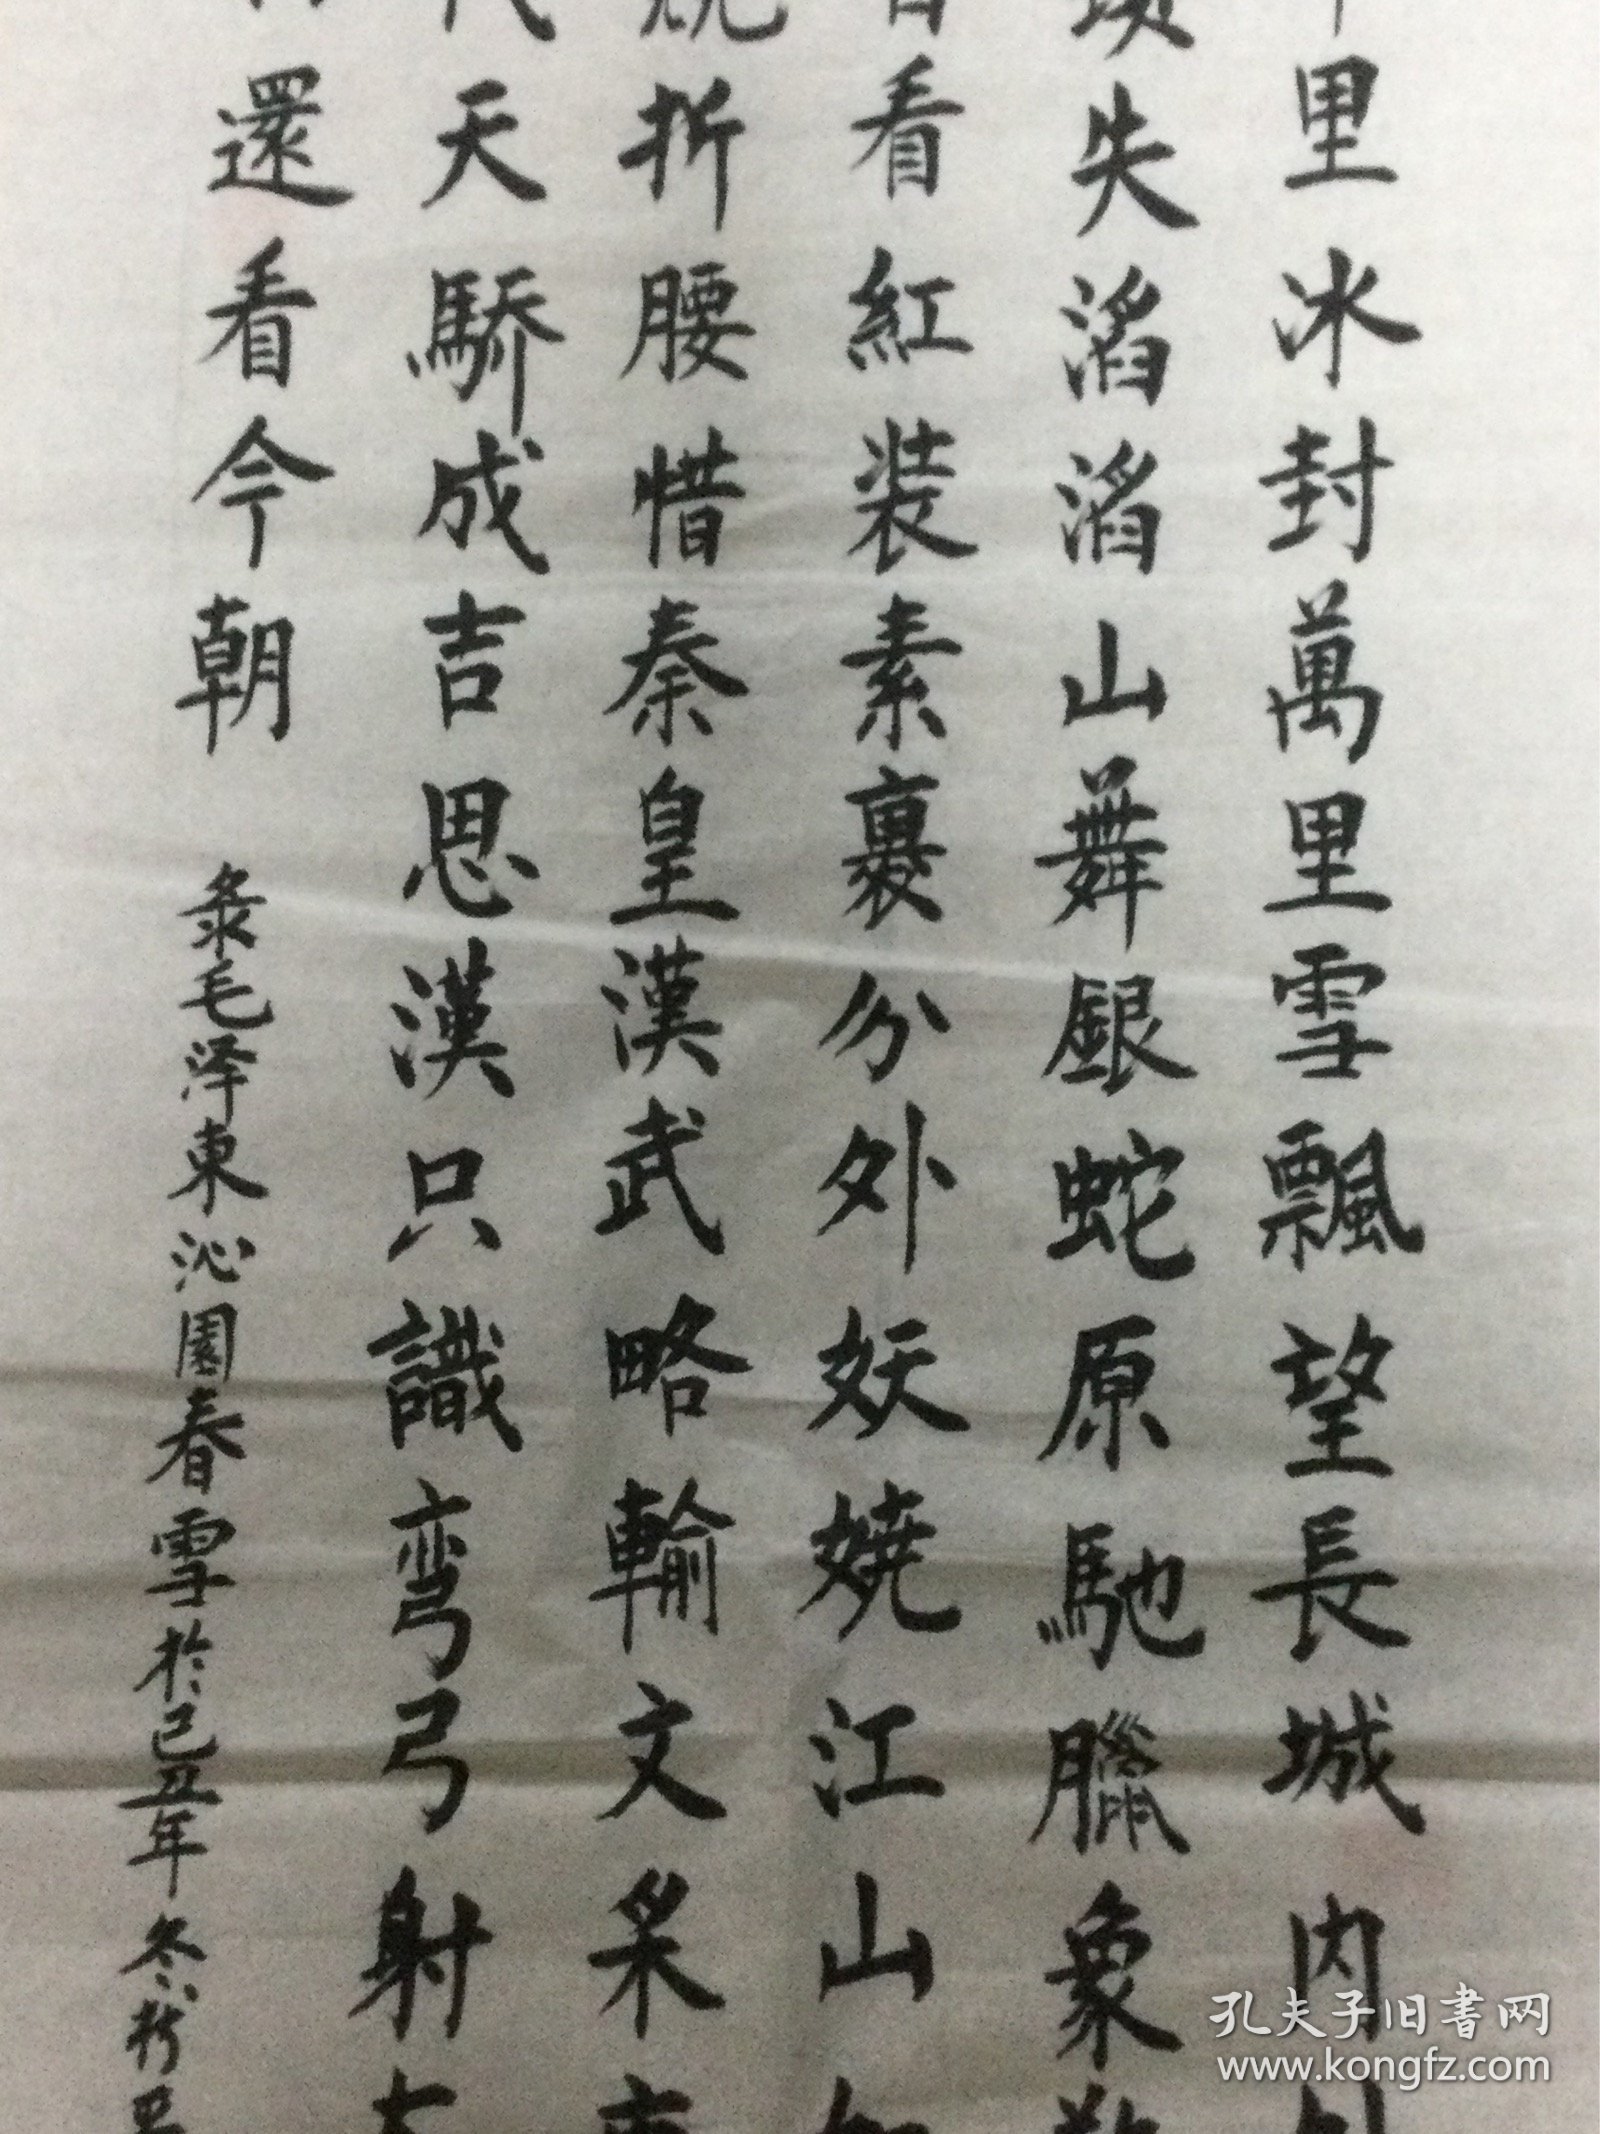 里冰封萬里雪飄望長城內
失滔滔山舞銀蛇原馳臘象
看紅裝素裹分外妖娆江山
折腰惜秦皇漢武略輸文采
天驕成吉思漢只識彎弓射
還看今朝
录毛泽東沁園春雪於己丑年冬
孔夫子旧書网
www.kongfz.com